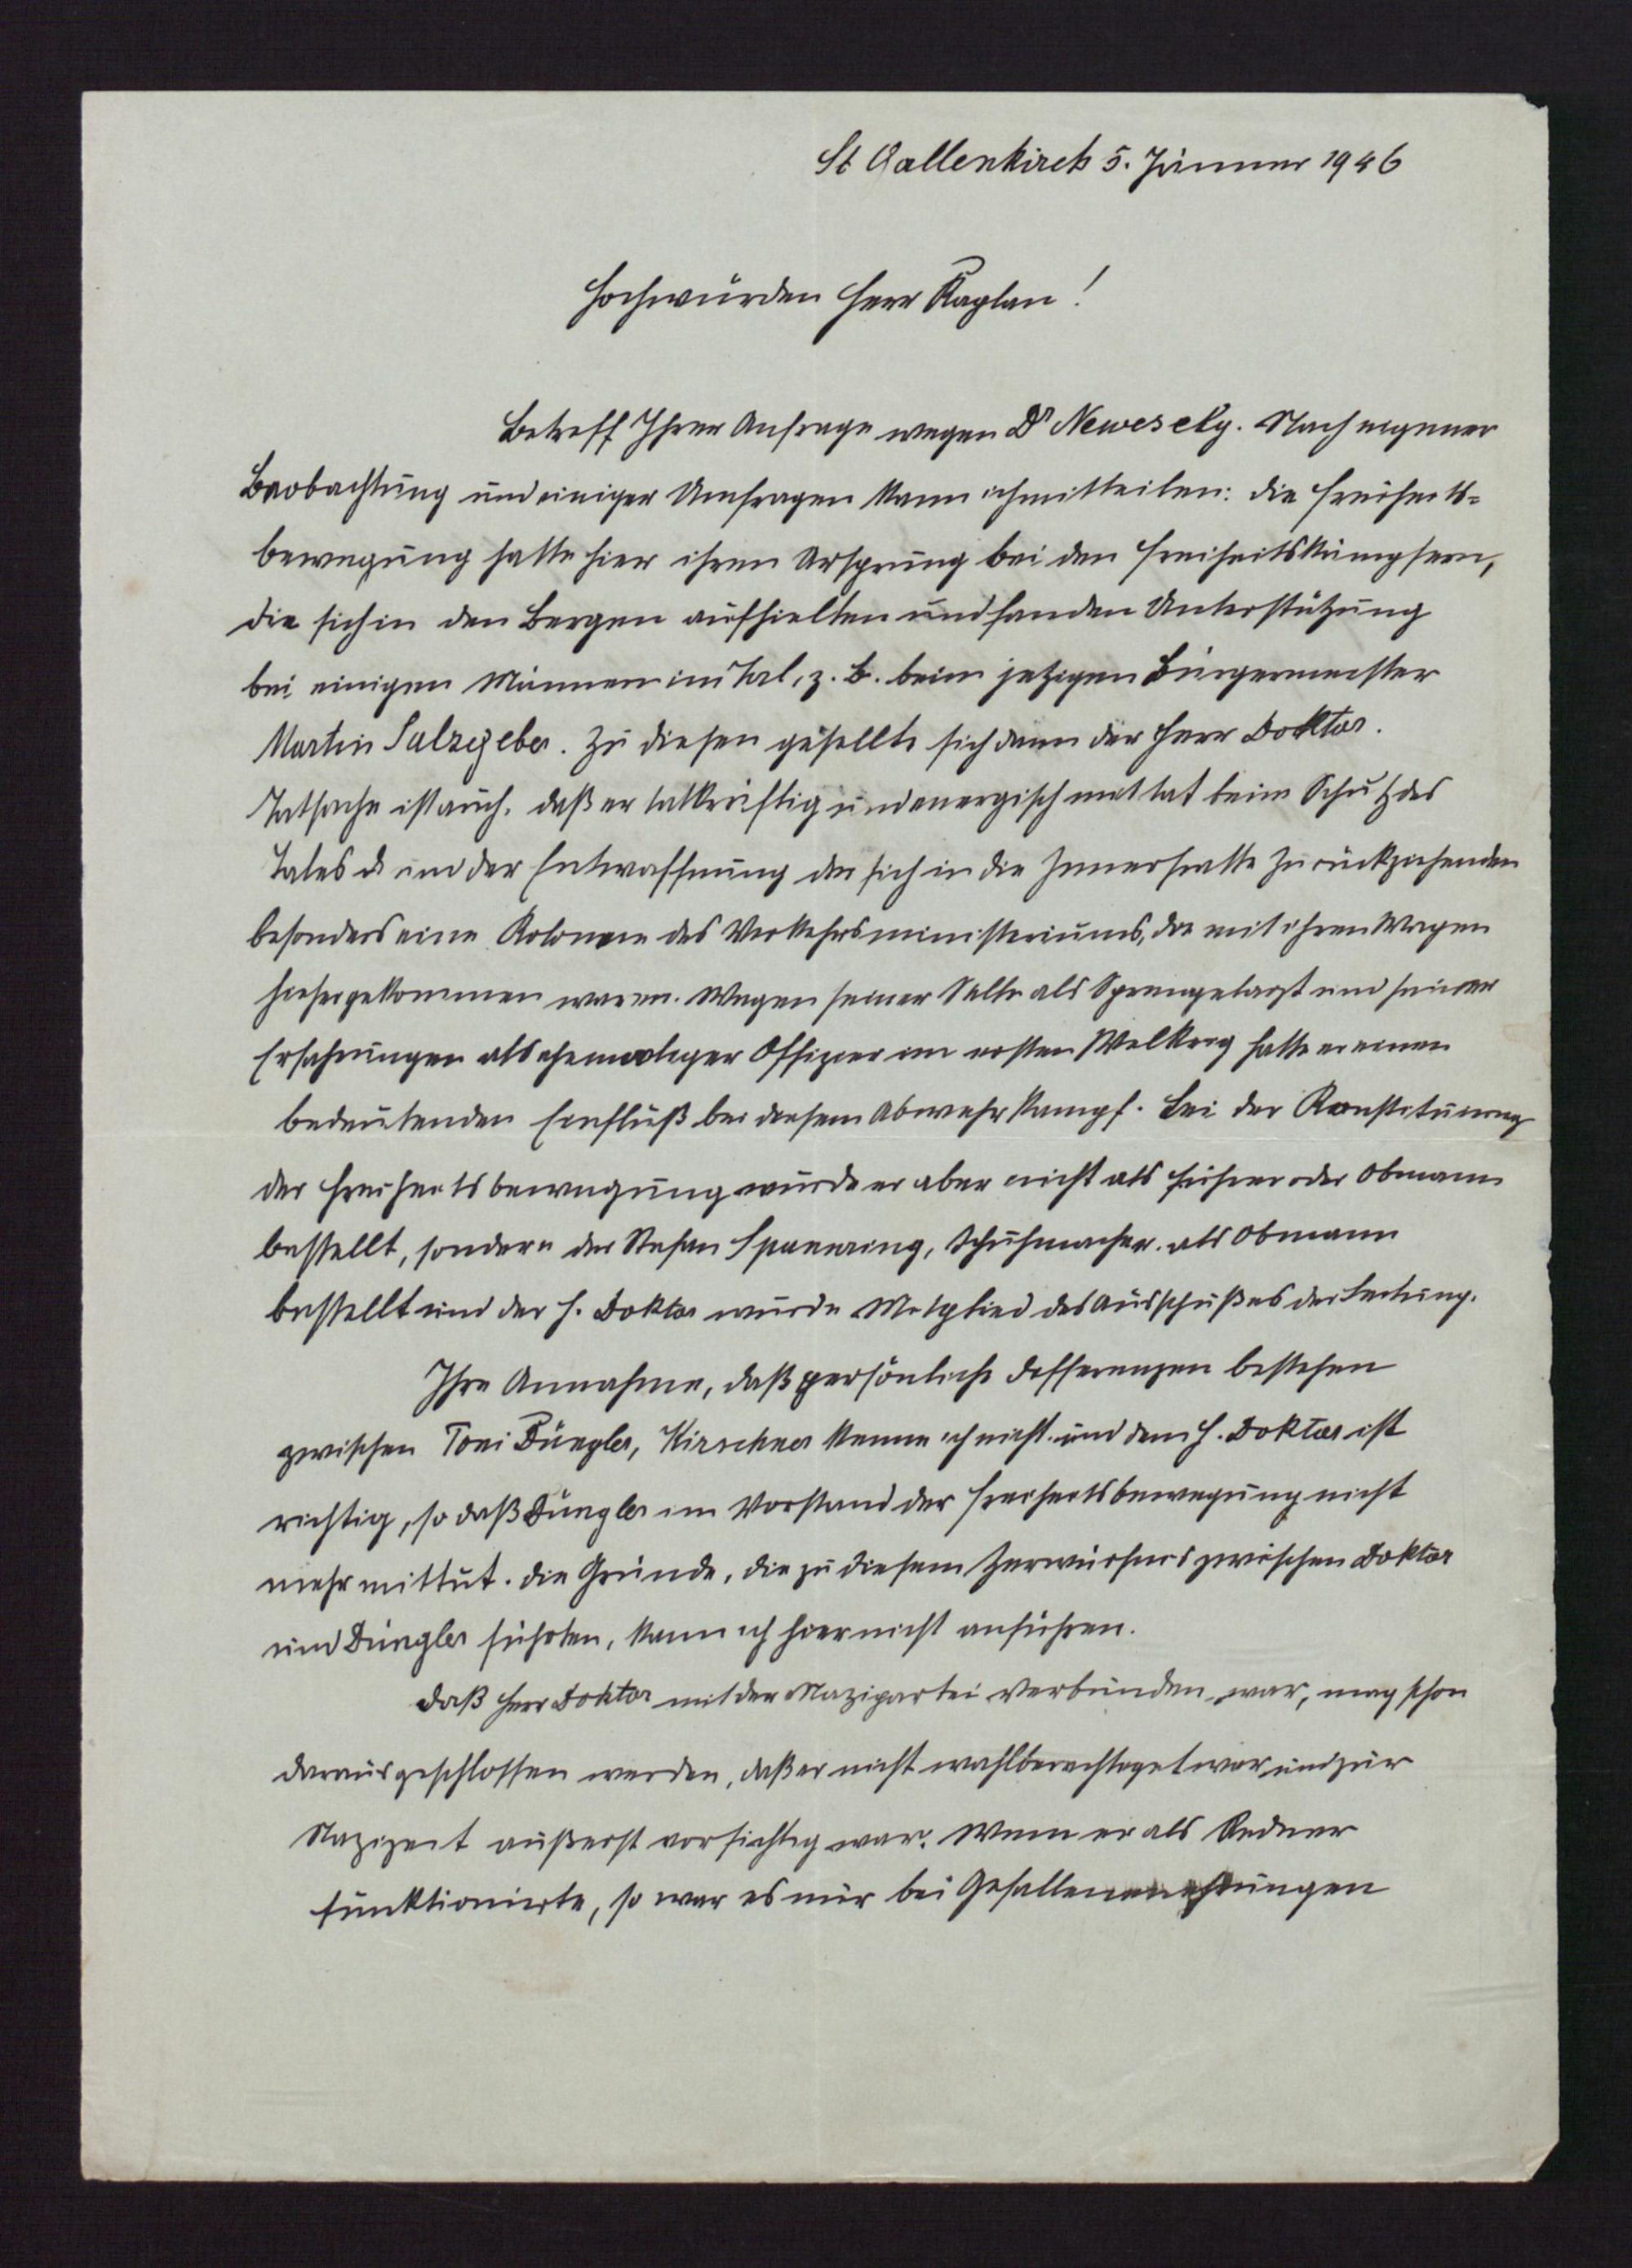 St Gallenkirch 5. Jänner 1946
Hochwürden Herr Kaplan!
Betreff Ihrer Anfrage wegen Dr Newesely. Nach eigener
Beobachtung und einiger Umfragen kann ich mitteilen: die Freiheits-
bewegung hatte hier ihren Ursprung bei den Freiheitskämpfern,
die sich in den Bergen aufhielten und fanden Unterstützung
bei einigen Männern im Tal, z. B. beim jetzigen Bürgermeister
Martin Salzgeber. Zu diesen gesellte sich dann der Herr Doktor.
Tatsache ist auch, daß er tatkräftig und energisch mittat beim Schutz des
Tales und der Entwaffnung der sich in die zurückziehenden
besonders eine Kolonne des Verkehrsministeriums, die mit ihren Wagen
hiehergekommen waren. Wegen seiner Stelle als Sprengelarzt und seiner
Erfahrungen als ehemaliger Offizier im ersten Weltkrieg hatte er einen
bedeutenden Einfluß bei diesem Abwehrkampf. Bei der Konstituierung
der Freiheitsbewegung wurde er aber nicht als Führer oder Obmann
bestellt, sondern der Stefan Spannring, Schuhmacher als Obmann
bestellt und der H. Doktor wurde Mitglied des Ausschußes der Leitung.
Ihre Annahme, daß persönliche Differenzen bestehen
zwischen Toni Düngler, Kirschner kenne ich nicht und dem H. Doktor ist
richtig, so daß Düngler im Vorstand der Freiheitsbewegung nicht
mehr mittut. Die Gründe, die zu diesem Zerwürfnis zwischen Doktor
und Düngler führten, kann ich hier nicht anführen.
Daß Herr Doktor mit der Nazipartei verbunden war, mag schon
daraus geschlossen werden, daß er nicht wahlberechtiget war und zur
Nazizeit äußerst vorsichtig war. Wenn er als Redner
funktionierte, so war es nur bei Gefallenenehrungen